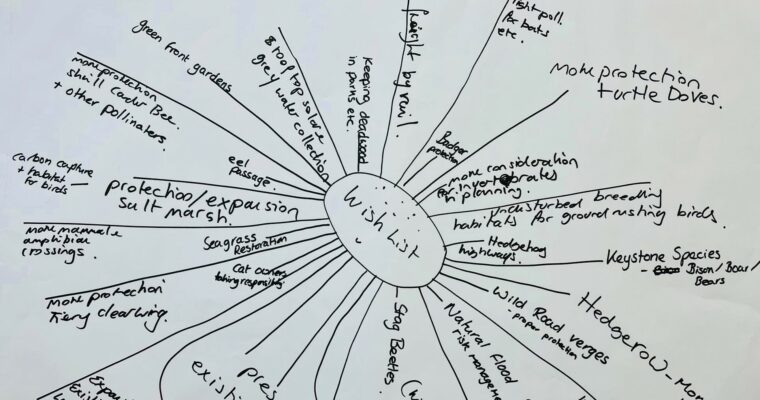 Wish List
green front gardens
& roof top solar
grey water collection
Keeping deadwood
in parks etc.
freight by rail
light poll.
for bats
etc.
more protection
shrill Carder Bee.
+ other pollinators.
More protection
turtle Doves.
Badger
protection
more consideration
for invertebrates
in planning.
eel
passage.
carbon capture
+ habitat
for birds
protection/expansion
salt marsh.
Undisturbed breeding
habitats for ground nesting birds.
more mammal &
amphibian
crossings.
Seagrass
Restoration
Hedgehog
highways.
Keystone Species
- Bison/Boar/
Bears
Cat owners
taking responsibility
More protection
Fiery clearwing.
Wild Road verges
- proper protection
Hedgerow - Mor
Natural flood
risk management
Stag Beetles
pres
existi
Expan
Exist